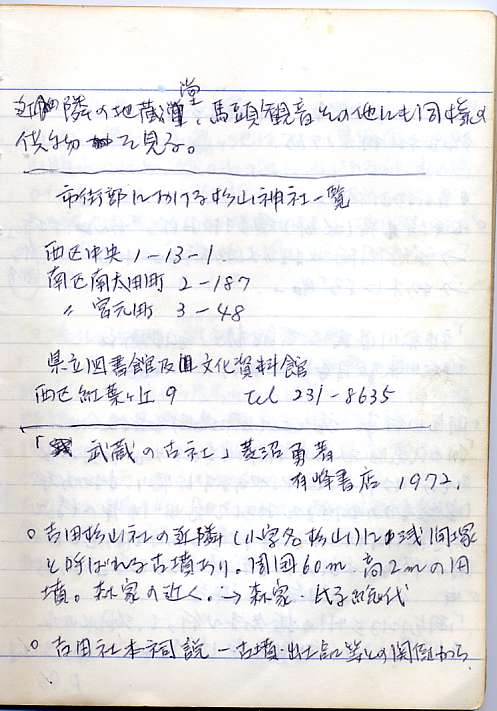 近隣の地蔵堂、馬頭観音その他にも同様の
供物を見る。
市街部における杉山神社一覧
西区中央 1-13-1
南区南太田町 2-187
〃 宮元町 3-48
県立図書館及文化資料館
西区紅葉ヶ丘 9 tel 231-8635
「武蔵の古社」菱沼勇著
有峰書店 1972.
○ 吉田杉山社の近隣(小字名杉山)に
と呼ばれる古墳あり。周囲60m、高2mの円
墳。森家の近く。→森家・氏子総代
○ 吉田社本祠説 - 古墳・出土品等との関係から